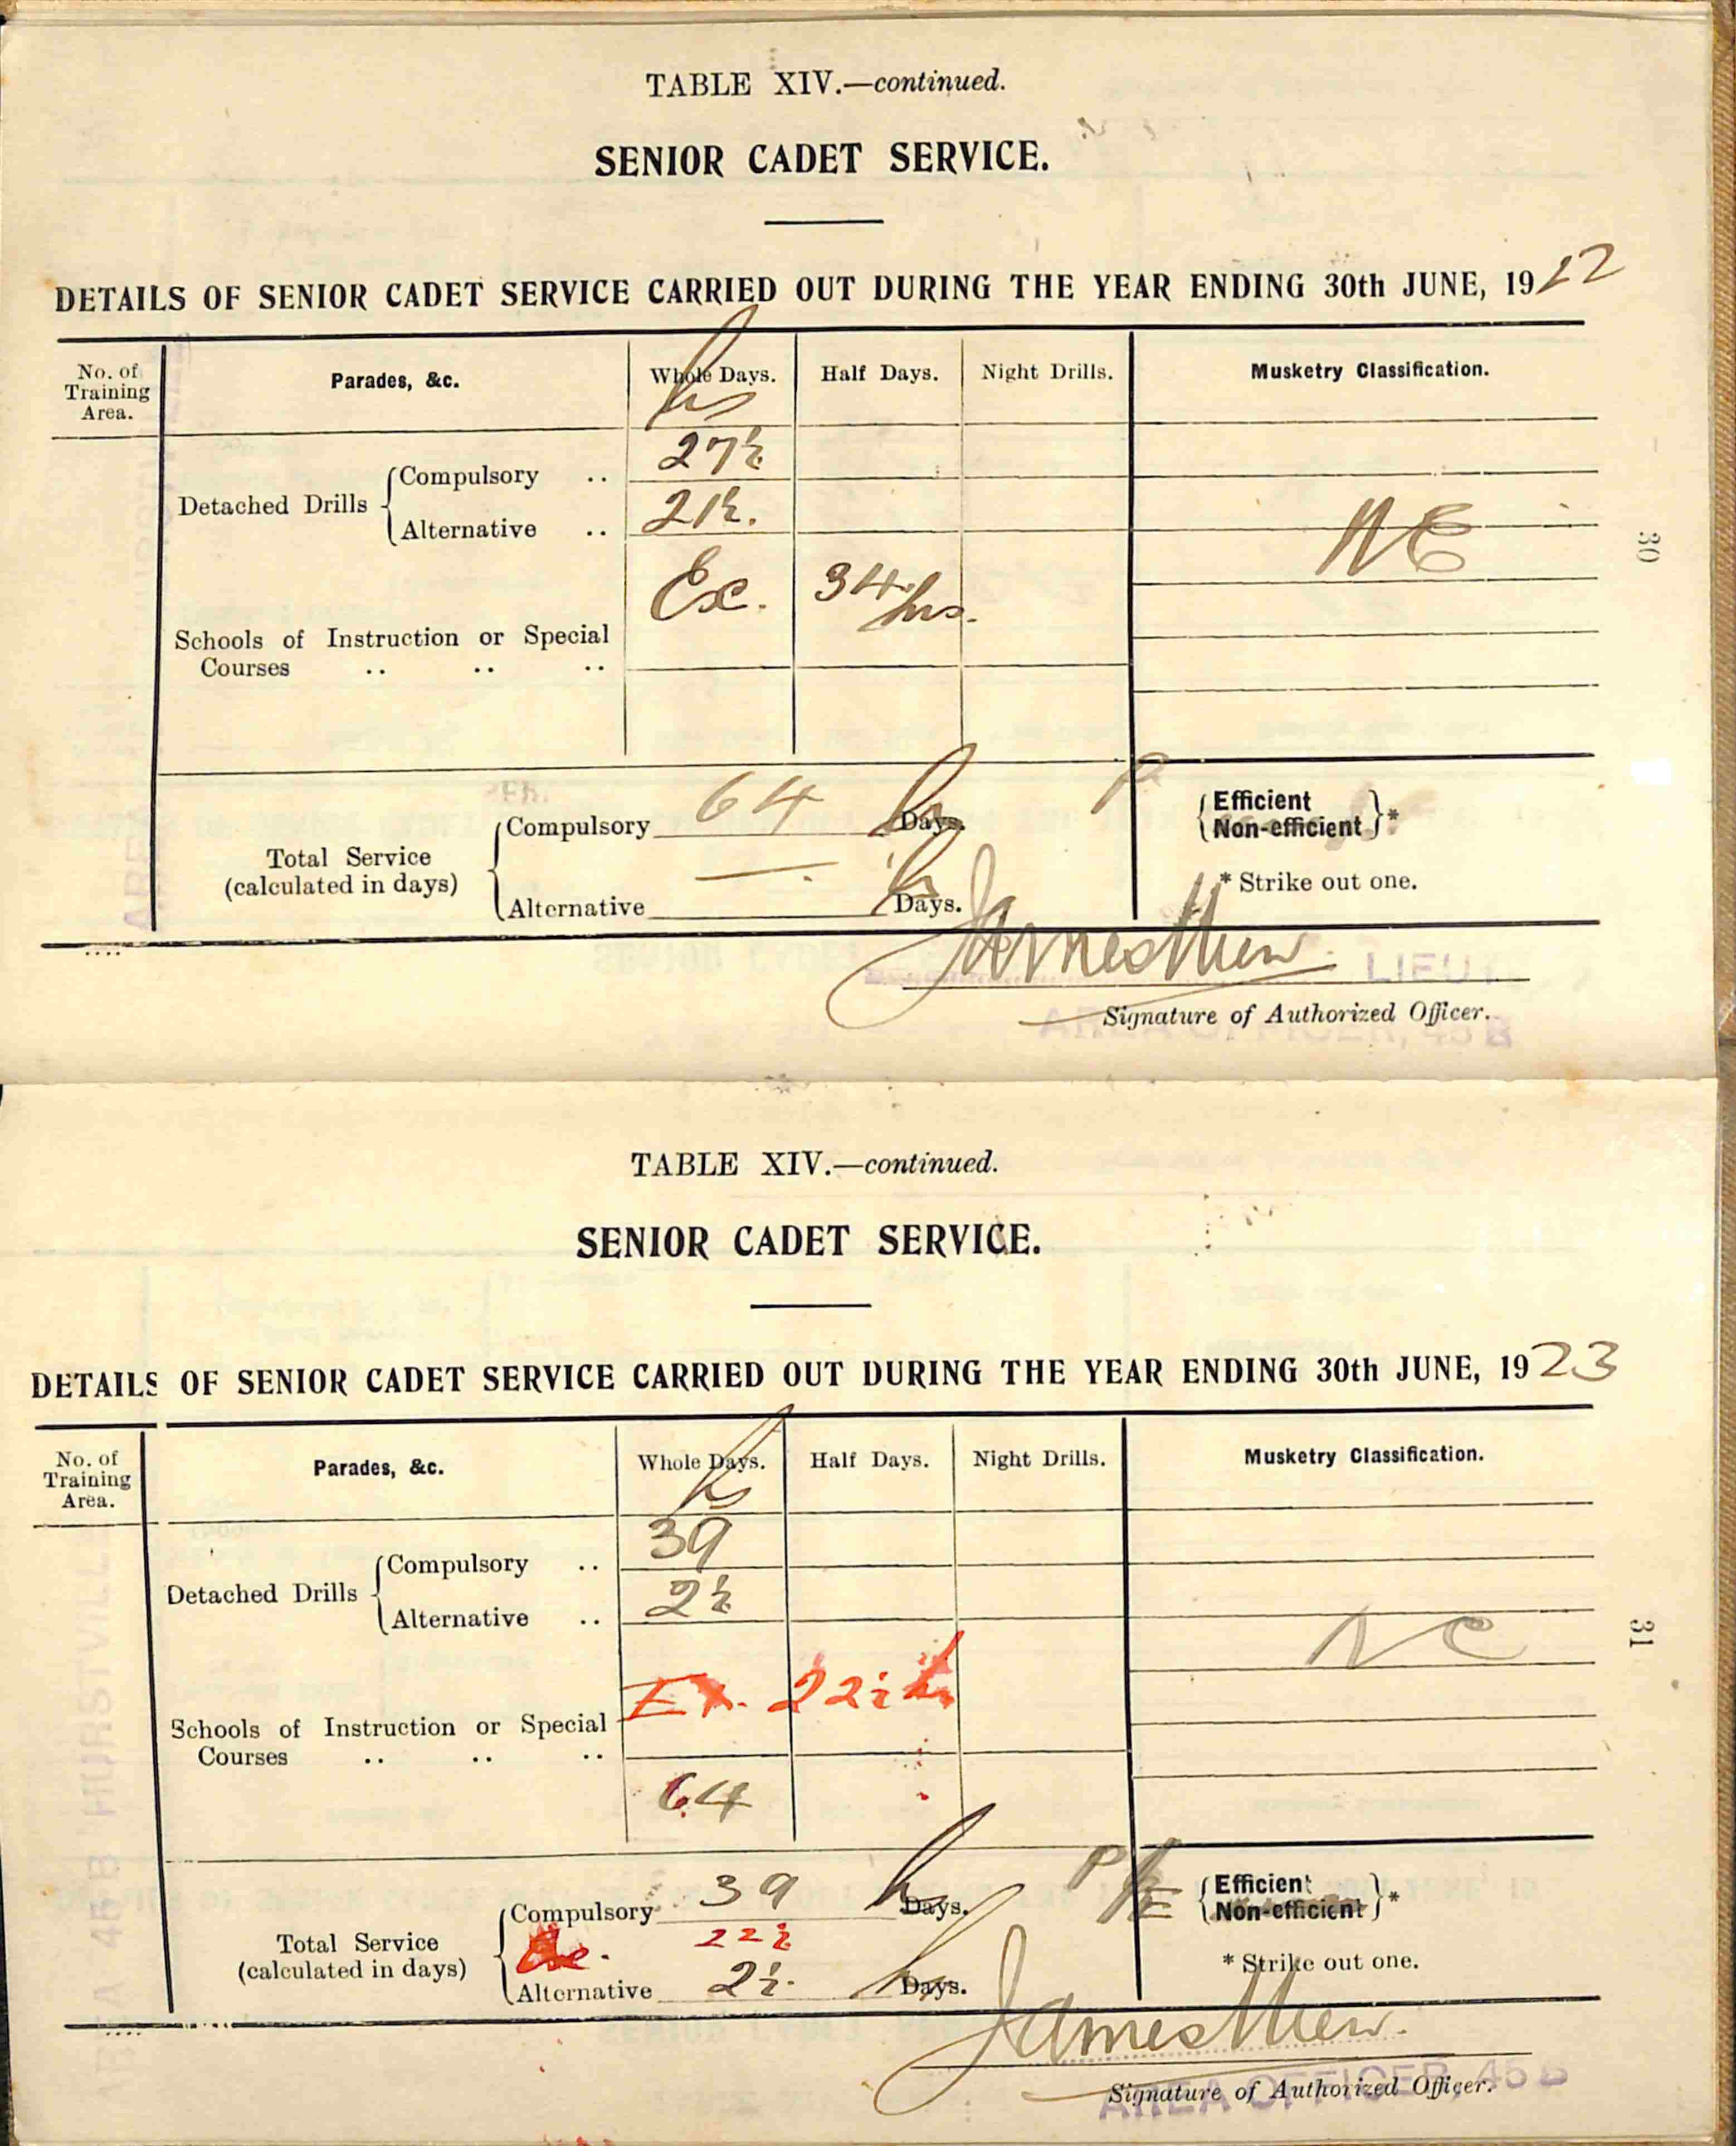 TABLE XIV.—continued.
SENIOR CADET SERVICE.
DETAILS OF SENIOR CADET SERVICE CARRIED OUT DURING THE YEAR ENDING 30th JUNE, 1922
No. of Training Area.
Parades, &c.
Whole Days.
Half Days.
Night Drills.
Musketry Classification.
hrs
Detached Drills
Compulsory .. 27½
Alternative .. 2½.
Ex. 34 hrs.
Schools of Instruction or Special
Courses .. .. ..
NC
30
Total Service
(calculated in days)
Compulsory 64 hrs Days.
Alternative — . hrs Days.
P
Efficient
Non-efficient
*
* Strike out one.
James Mew. LIEUT
Signature of Authorized Officer.
AREA OFFICER, 45 B
TABLE XIV.—continued.
SENIOR CADET SERVICE.
DETAILS OF SENIOR CADET SERVICE CARRIED OUT DURING THE YEAR ENDING 30th JUNE, 1923
No. of Training Area.
Parades, &c.
Whole Days.
Half Days.
Night Drills.
Musketry Classification.
hrs
Detached Drills
Compulsory .. 39
Alternative .. 2½
Ex. 22½ h
Schools of Instruction or Special
Courses .. .. ..
64
NC
31
AREA 45 B HURSTVILLE
Total Service
(calculated in days)
Compulsory 39 hrs Days.
Ex. 22½
Alternative 2½. hrs Days.
P
Efficient
Non-efficient
*
* Strike out one.
James Mew.
Signature of Authorized Officer.
AREA OFFICER, 45 B